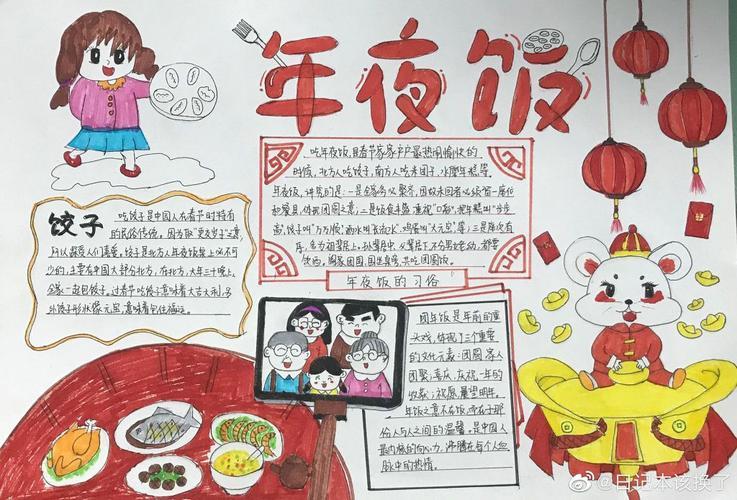 年夜饭
吃年夜饭,是春节家家户户最热闹愉快的
时候,北方人吃饺子,南方人吃米团子、水磨年糕等。
年夜饭,讲究的是:一是全家务必聚齐,因故未回者必须留一座位
和餐具,体现团圆之意;二是饭食丰盛,重视"口彩",把年糕叫"步步
高",饺子叫"万万顺",酒水叫"长流水",鸡蛋叫"大元宝"等;三是座次有
序,多为祖辈居上,孙辈居中,父辈居下,不分男女老幼,都要
饮酒。阖家团圆,围坐桌旁,共吃团圆饭。
年夜饭的习俗
饺子
吃饺子是中国人在春节时特有
的民俗传统。因为取"更岁交子"之意,
所以非常受人们喜爱。饺子是北方人年夜饭桌上必不可
少的,主要在中国大部分北方。在北方,大年三十晚上,
全家一起包饺子。过春节吃饺子意味着大吉大利。另
外饺子形状像元宝,意味着包住福运。
团年饭是年前的重
头戏,体现了三个重要
的文化元素:团圆,家人
团聚;喜庆,庆祝一年的
收获;祝愿,展望明年。
年饭之意不在饭,而在于那
份人与人之间的温馨。是中国人
最内核的向心力,沸腾在每个人血
脉中的热情。
@日记本该换了